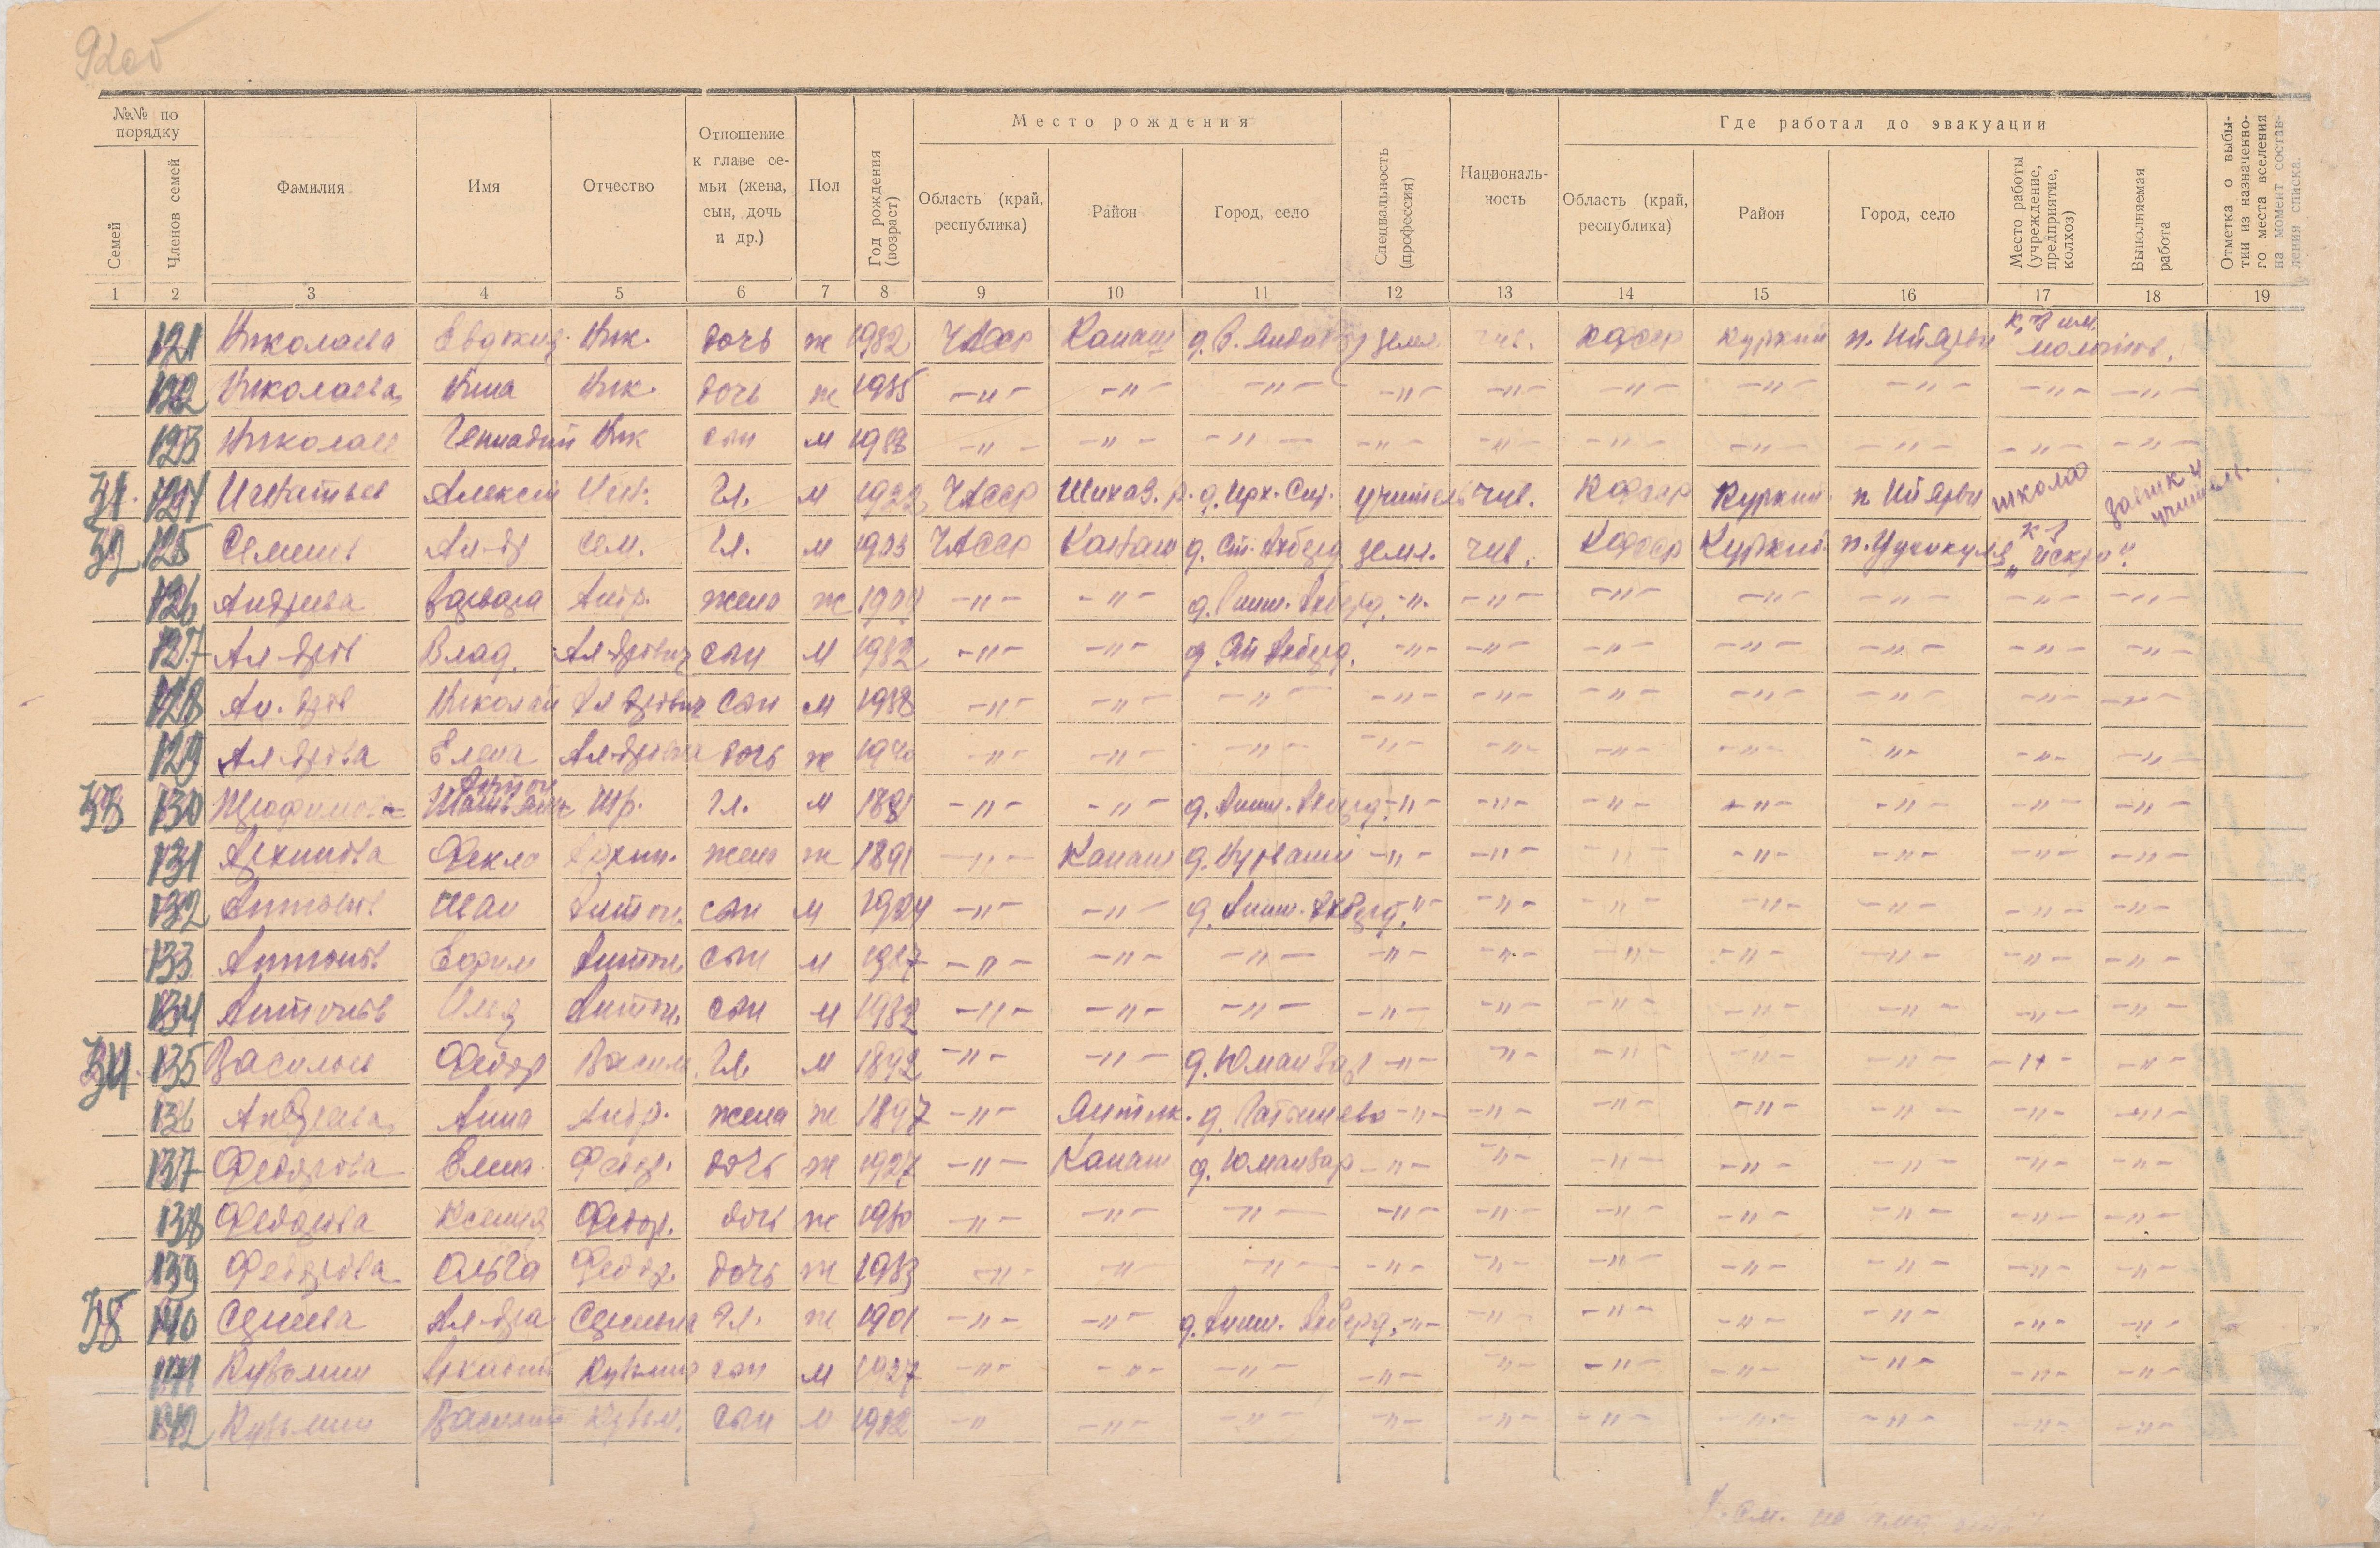 92об
№№ по порядку
Семей
Членов семей
Фамилия
Имя
Отчество
Отношение к главе семьи (жена, сын, дочь и др.)
Пол
Год рождения (возраст)
Место рождения
Область (край, республика)
Район
Город, село
Специальность (профессия)
Национальность
Где работал до эвакуации
Область (край, республика)
Район
Город, село
Место работы (учреждение, предприятие, колхоз)
Выполняемая работа
Отметка о выбытии из назначенного места вселения на момент составления списка.
1 2 3 4 5 6 7 8 9 10 11 12 13 14 15 16 17 18 19
121 Николаева Евдокия Ник. дочь ж 1932 ЧАССР Канаш земл чув. КФССР Куркий п. Ийярви
122 Николаева Нина Ник. дочь ж 1935 -"- -"- -"- -"- -"- -"- -"- -"- -"- -"-
123 Николаев Геннадий Ник сын м 1938 -"- -"- -"- -"- -"- -"- -"- -"- -"- -"-
31. 124 Игнатьев Алексей Игн. Гл. м 1922 ЧАССР Шихаз. р. учитель чув. КФССР Куркий п Ийярви школа
32 125 Семенов Ал-др Сем. Гл. м 1903 ЧАССР Канаш д. Ст. Ахберд. земл. чув. КФССР Куркий. к-з „Искра".
126 Андреева Варвара Андр. жена ж 1904 -"- -"- д. Аниш. Ахберд. -"- -"- -"- -"- -"- -"- -"-
127 Ал-дров Влад. Ал-дрович сын м 1932 -"- -"- д. Ст Ахберд. -"- -"- -"- -"- -"- -"- -"-
128 Ал-дров Николай Ал-дрович сын м 1938 -"- -"- -"- -"- -"- -"- -"- -"- -"- -"-
129 Ал-дрова Елена Ал-дровна дочь ж 1940 -"- -"- -"- -"- -"- -"- -"- -"- -"- -"-
33 130 Трофимов Антон Тр. Гл. м 1891 -"- -"- д. Аниш. Ахберд. -"- -"- -"- -"- -"- -"- -"-
131 Архипова Фекла Архип. жена ж 1891 -"- Канаш -"- -"- -"- -"- -"- -"- -"-
132 Антонов Иван Антон. сын м 1924 -"- -"- д. Аниш. Ахберд. -"- -"- -"- -"- -"- -"- -"-
133 Антонов Ефрем Антон. сын м 1927 -"- -"- -"- -"- -"- -"- -"- -"- -"- -"-
134 Антонов Илья Антон. сын м 1932 -"- -"- -"- -"- -"- -"- -"- -"- -"- -"-
34. 135 Васильев Федор Васил. Гл. м 1892 -"- -"- д. Юманзар -"- -"- -"- -"- -"- -"- -"-
136 Андреева Анна Андр. жена ж 1897 -"- Янтик. -"- -"- -"- -"- -"- -"- -"-
137 Федорова Елена Федор. дочь ж 1927 -"- Канаш д. Юманзар -"- -"- -"- -"- -"- -"- -"-
138 Федорова Ксения Федор. дочь ж 1930 -"- -"- -"- -"- -"- -"- -"- -"- -"- -"-
139 Федорова Ольга Федор. дочь ж 1933 -"- -"- -"- -"- -"- -"- -"- -"- -"- -"-
35 140 Ал-дра Гл. ж 1901 -"- -"- д. Аниш. Ахберд. -"- -"- -"- -"- -"- -"- -"-
141 Кузьмин Аркадий Кузьмич сын м 1927 -"- -"- -"- -"- -"- -"- -"- -"- -"- -"-
142 Кузьмин Василий Кузьм. сын м 1932 -"- -"- -"- -"- -"- -"- -"- -"- -"- -"-